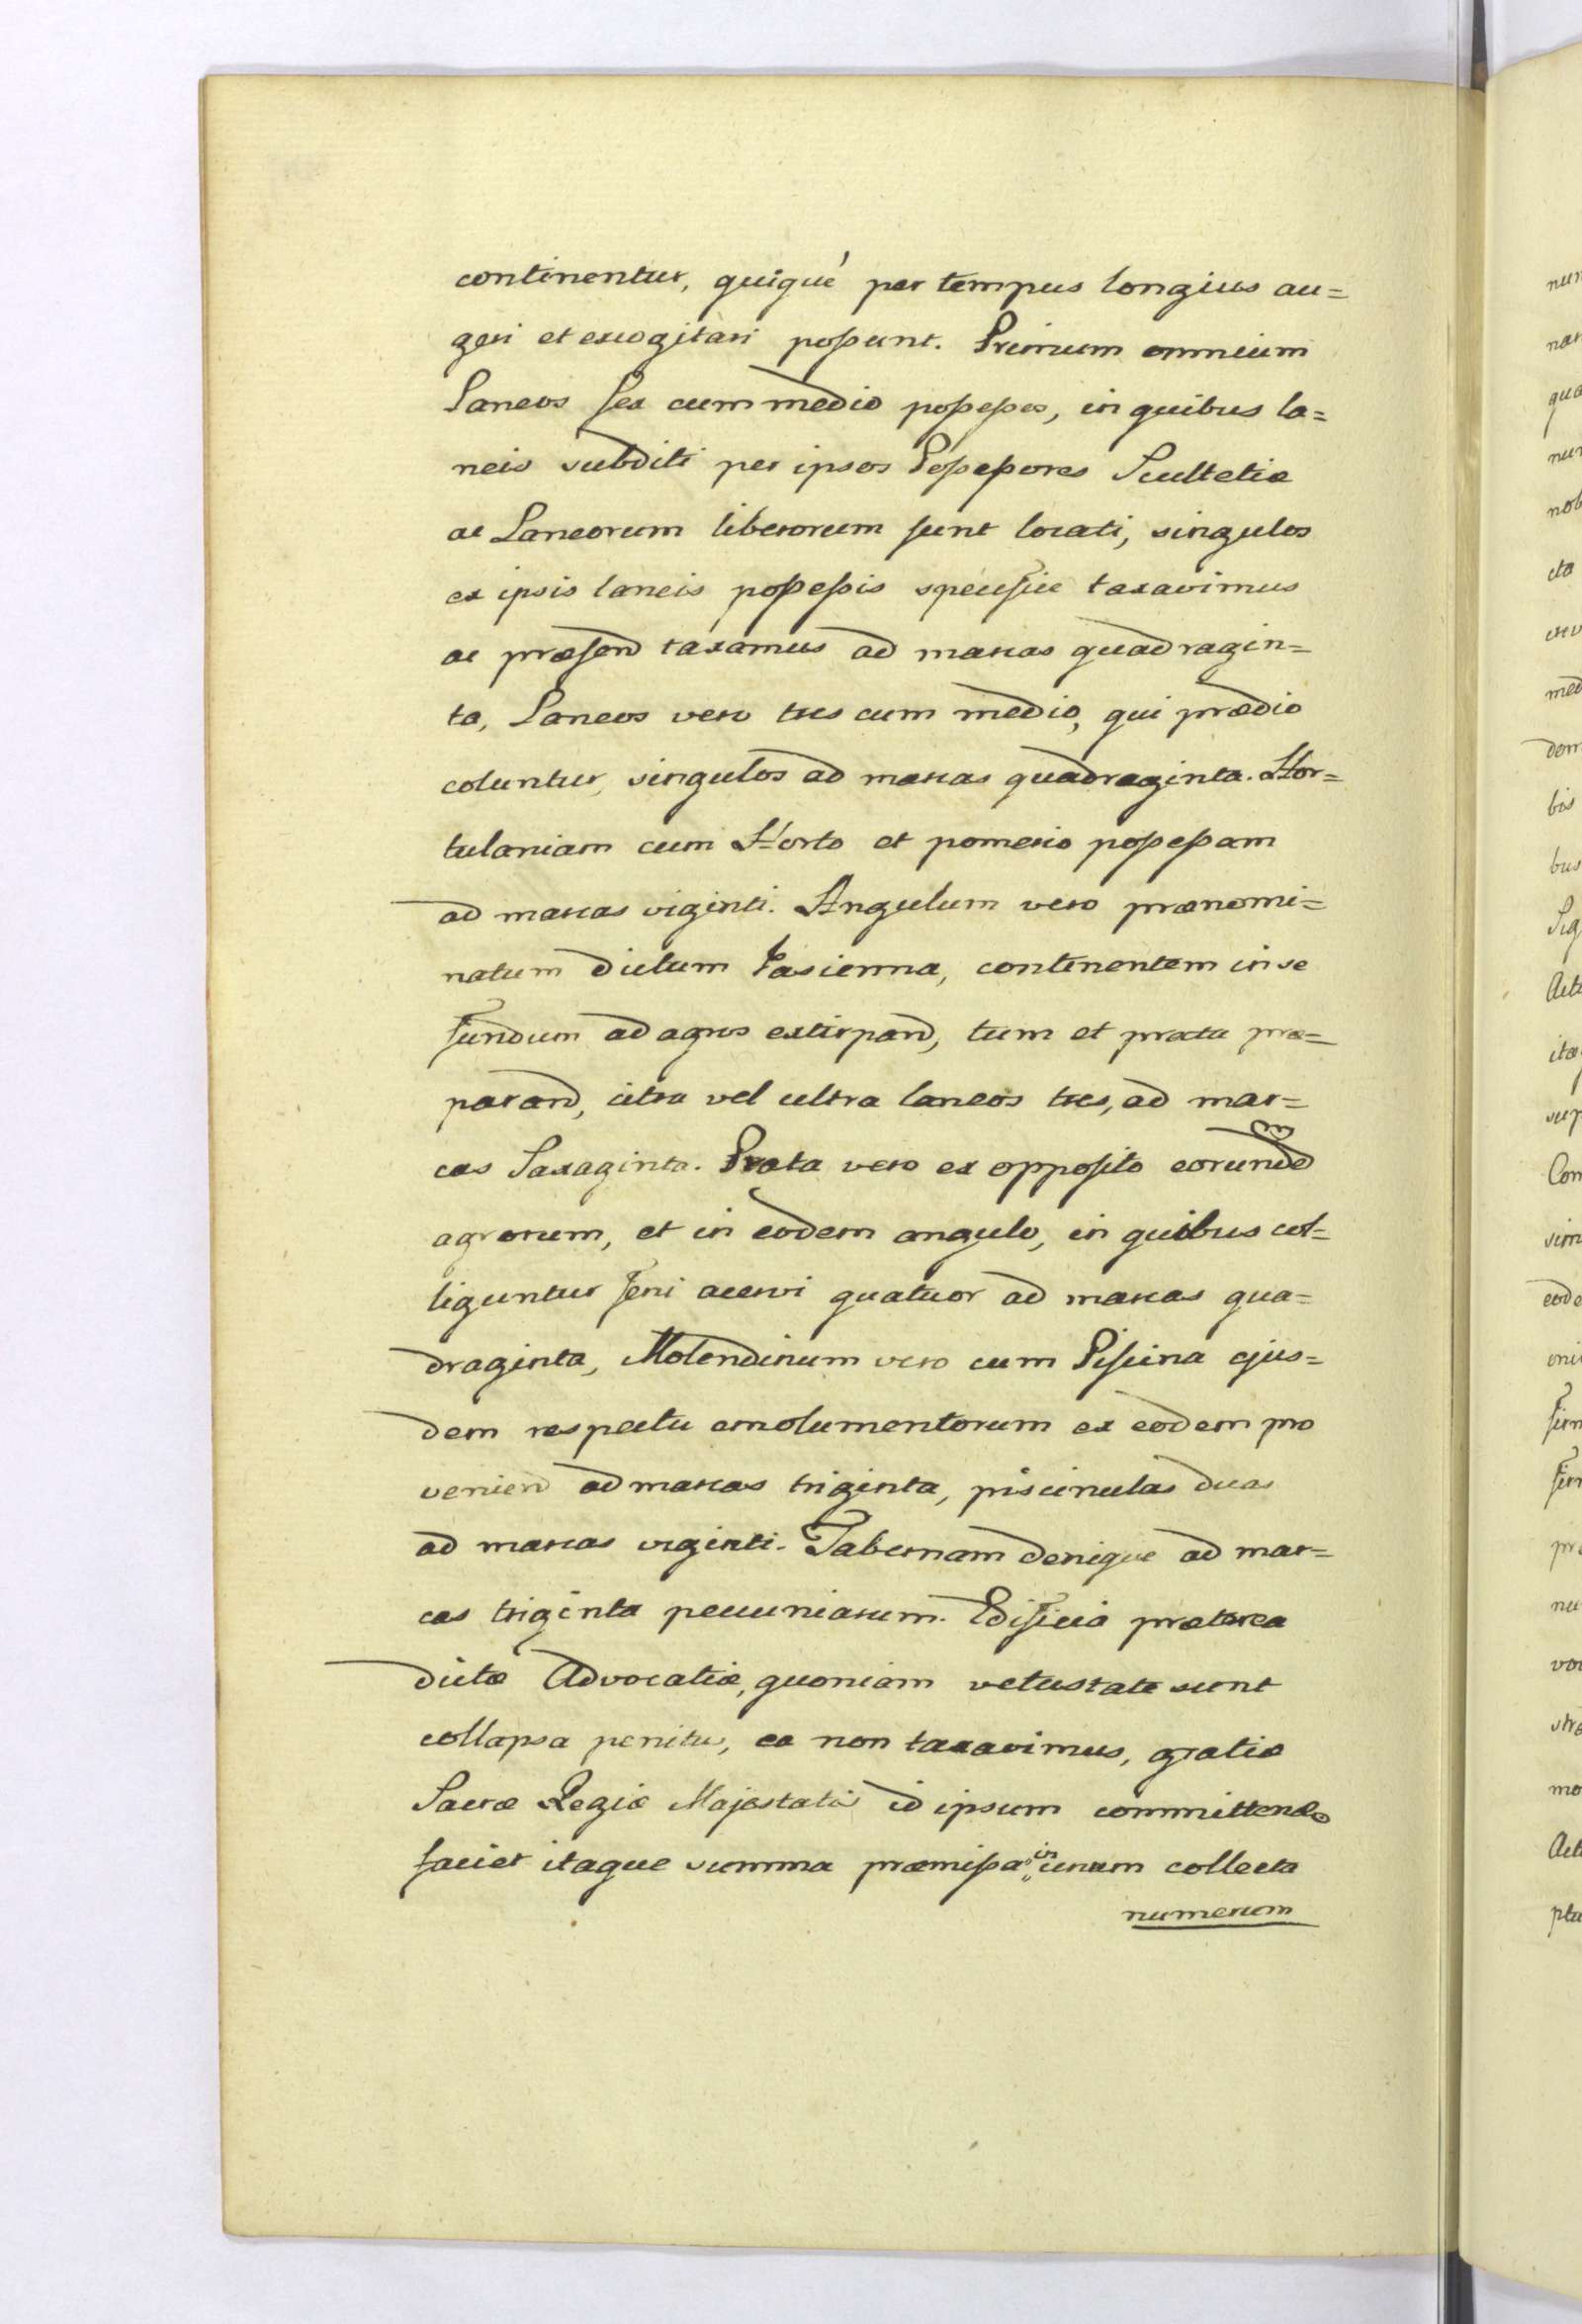 continentur, quiquè per tempus longius au=
geri et excogitari possunt. Primum omnium
Laneos sex cum medio possessos, in quibus la=
neis subditi per ipsos Possessores Scultetiæ
ac Laneorum liberorum sunt locati, singulos
ex ipsis laneis possessis specifice taxavimus
ac præsend taxamus ad marcas quadragin=
ta, Laneos vero tres cum medio, qui prædio
coluntur, singulos ad marcas quadraginta. Hor=
tulaniam cum Horto et pomerio possessam
ad marcas viginti. Angulum vero prænomi=
natum dictum Jasienna, continentem in se
fundum ad agros extirpand, tum et prata præ=
parand, citra vel ultra laneos tres, ad mar=
cas Saxaginta. Prata vero ex opposito eorund
agrorum, et in eodem angulo, in quibus col=
liguntur feni acervi quatuor ad marcas qua=
draginta, Molendinum vero cum Piscina ejus=
dem respectu emolumentorum ex eodem pro
venien ad marcas triginta, piscinulas duas
ad marcas viginti. Tabernam denique ad mar=
cas triginta pecuniarum. Edificia præterea
dictæ Advocatiæ, quoniam vetustate sunt
collapsa penitus, ea non taxavimus, gratiæ
Sacræ Regiæ Majestatis id ipsum committendo
faciet itaque summa præmissa in unum collecta
numerum
nun
nar
qua
nun
nob
cta
med
dom
bis
bus
Sig
Act
ita
sup
Con
sim
eode
oni
fir
pr
nu
mo
Act
ptu